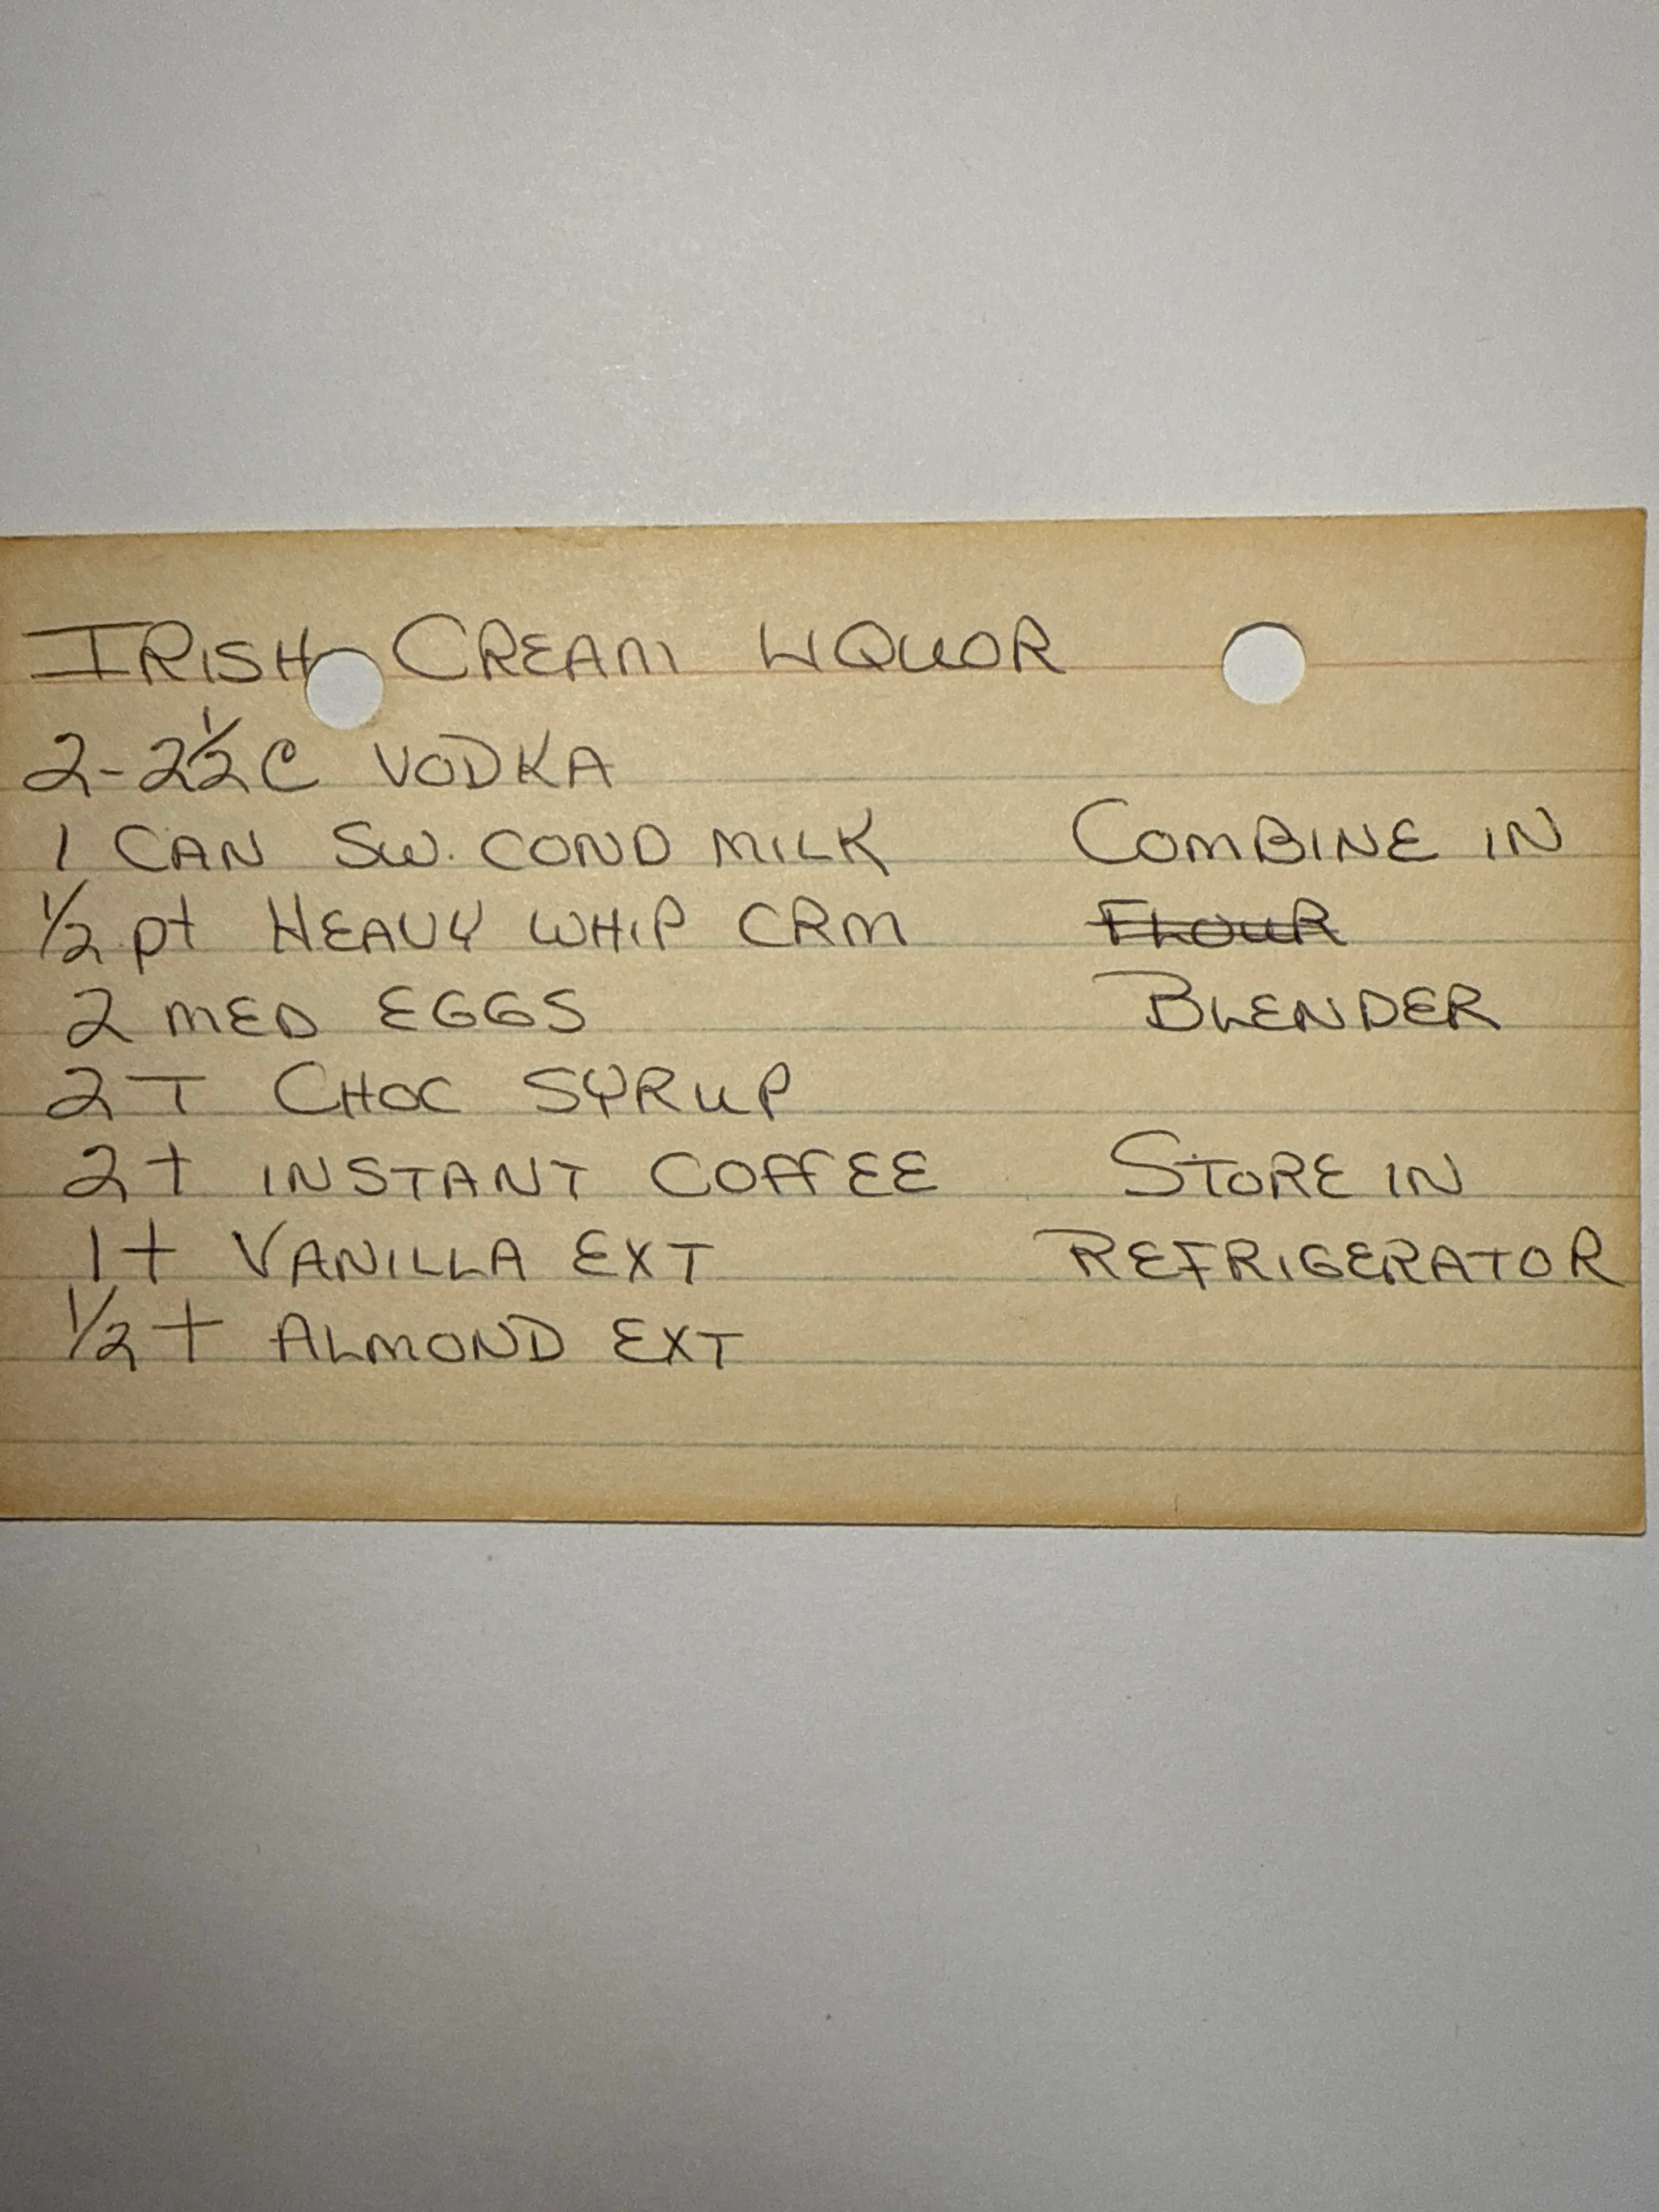 IRISH CREAM LIQUOR
2-2½ C VODKA
1 CAN SW. COND MILK
½ pt HEAVY WHIP CRM
2 MED EGGS
2 T CHOC SYRUP
2 t INSTANT COFFEE
1 t VANILLA EXT
½ t ALMOND EXT
COMBINE IN
FLOUR
BLENDER
STORE IN
REFRIGERATOR